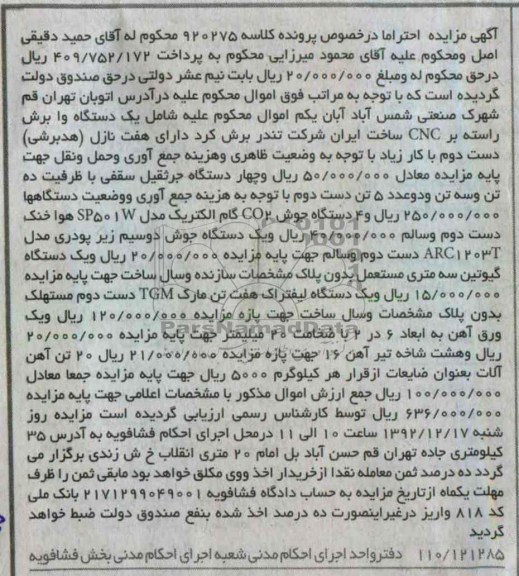 آگهی مزایده  احتراما درخصوص پرونده کلاسه ۹۲۰۲۷۵ محکوم له آقای حمید دقیقی
اصل ومحکوم علیه آقای محمود میرزایی محکوم به پرداخت ۴۰۹/۷۵۲/۱۷۲ ریال
درحق محکوم له ومبلغ ۲۰/۰۰۰/۰۰۰ ریال بابت نیم عشر دولتی درحق صندوق دولت
گردیده است که با توجه به مراتب فوق اموال محکوم علیه درآدرس اتوبان تهران قم
شهرک صنعتی شمس آباد آبان یکم اموال محکوم علیه شامل یک دستگاه وا برش
راسته بر CNC ساخت ایران شرکت تندر برش کرد دارای هفت نازل (هدبرشی)
دست دوم با کار زیاد با توجه به وضعیت ظاهری وهزینه جمع آوری وحمل ونقل جهت
پایه مزایده معادل ۵۰/۰۰۰/۰۰۰ ریال وچهار دستگاه جرثقیل سقفی با ظرفیت ده
تن وسه تن ودوعدد ۵ تن دست دوم با توجه به هزینه جمع آوری ووضعیت دستگاهها
۲۵۰/۰۰۰/۰۰۰ ریال و۴ دستگاه جوش CO۲ گام الکتریک مدل SP۵۰۱W هوا خنک
دست دوم وسالم ۴۰/۰۰۰/۰۰۰ ریال ویک دستگاه جوش دوسیم زیر پودری مدل
ARC۱۲۰۳T دست دوم وسالم جهت پایه مزایده ۲۰/۰۰۰/۰۰۰ ریال ویک دستگاه
گیوتین سه متری مستعمل بدون پلاک مشخصات سازنده وسال ساخت جهت پایه مزایده
۱۵/۰۰۰/۰۰۰ ریال ویک دستگاه لیفتراک هفت تن مارک TGM دست دوم مستهلک
بدون پلاک مشخصات وسال ساخت جهت پازه مزایده ۱۲۰/۰۰۰/۰۰۰ ریال ویک
ورق آهن به ابعاد ۶ در ۲ با ضخامت ۲۰ میلیمتر جهت پایه مزایده ۲۰/۰۰۰/۰۰۰
ریال وهشت شاخه تیر آهن ۱۶ جهت پازه مزایده ۲۱/۰۰۰/۰۰۰ ریال ۲۰ تن آهن
آلات بعنوان ضایعات ازقرار هر کیلوگرم ۵۰۰۰ ریال جهت پایه مزایده جمعا معادل
۱۰۰/۰۰۰/۰۰۰ ریال جمع ارزش اموال مذکور با مشخصات اعلامی جهت پایه مزایده
۶۳۶/۰۰۰/۰۰۰ ریال توسط کارشناس رسمی ارزیابی گردیده است مزایده روز
شنبه ۱۳۹۲/۱۲/۱۷ ساعت ۱۰ الی ۱۱ درمحل اجرای احکام فشافویه به آدرس ۳۵
کیلومتری جاده تهران قم حسن آباد بل امام ۲۰ متری انقلاب خ ش زندی برگزار می
گردد ده درصد ثمن معامله نقدا ازخریدار اخذ ووی مکلف خواهد بود مابقی ثمن را ظرف
مهلت یکماه ازتاریخ مزایده به حساب دادگاه فشافویه ۲۱۷۱۲۹۹۰۴۹۰۰۱ بانک ملی
کد ۸۱۸ واریز درغیراینصورت ده درصد اخذ شده بنفع صندوق دولت ضبط خواهد
گردید
۱۱۰/۱۲۱۲۸۵  دفترواحد اجرای احکام مدنی شعبه اجرای احکام مدنی بخش فشافویه
ParsNamadData